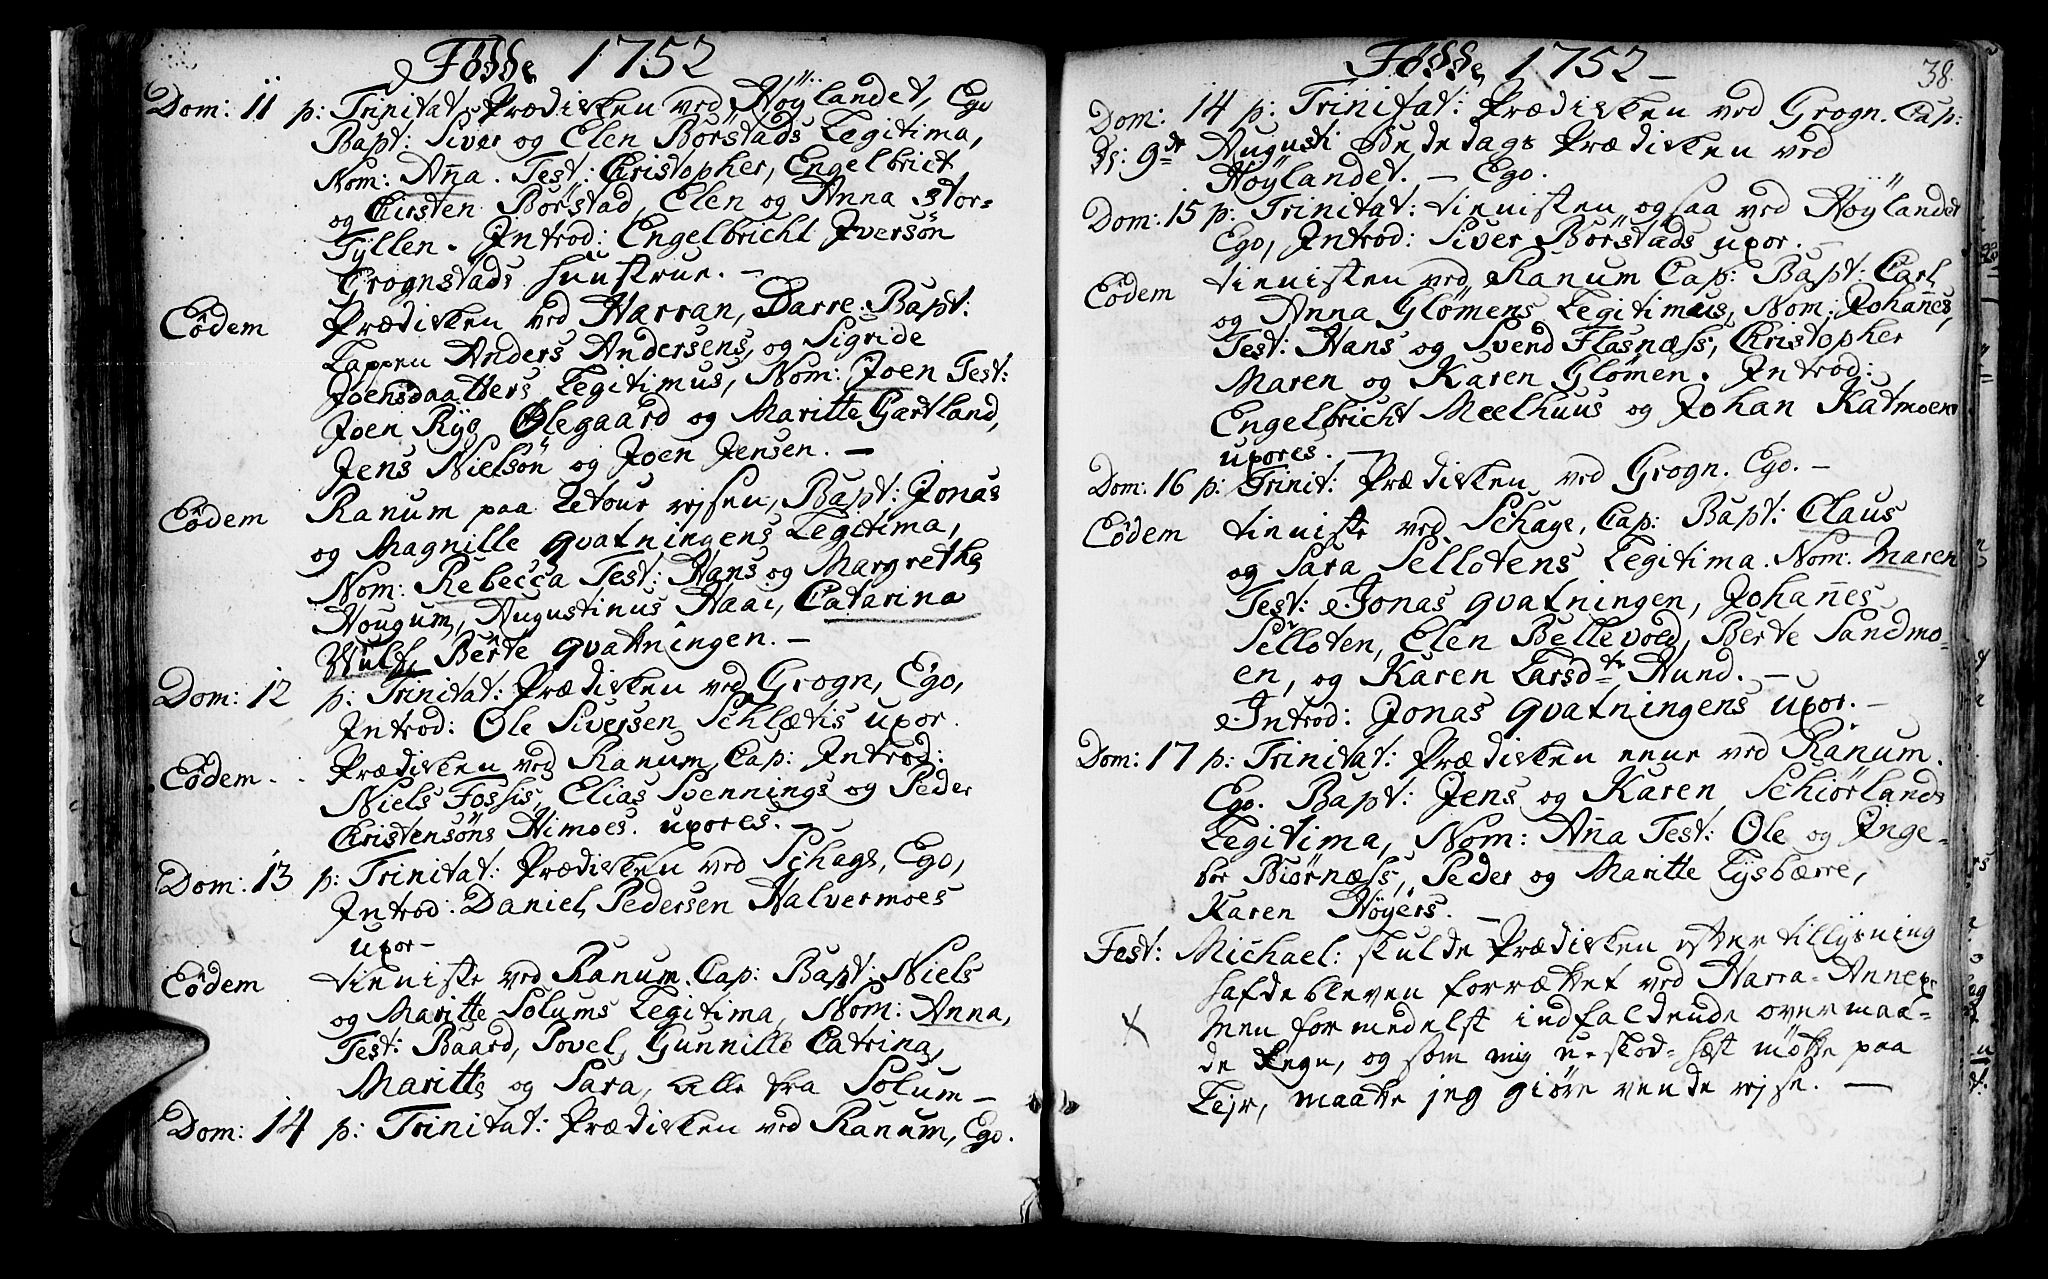 Fødde 1752
Dom: 11 p: Trinitat: Prædiken ved Höÿlandet, Ego
Bapt: Siver og Elen Börstads Legitima,
Nom: Ana. Test: Christopher, Engelbrict
og Chirsten Börstad, Elen og Anna Stor=
Tÿllen. Introd: Engelbricht Iversön
Grognstads hustrue. —
Eôdem Prædiken ved Harran, Darre. Bapt:
Lappen Anders Andersens, og Sigride
Joensdaatters Legitimus, Nom: Joen Test:
Joen Rÿe Olegaard og Maritte Gartland,
Jens Nielsön og Joen Jensen. —
Eôdem Ranum paa Retour rejsen, Bapt: Jonas
og Magnille Qvatningens Legitima,
Nom: Rebecca Test: Hans og Margrethe
Hougum, Augustinus Haar, Catarina
Wulf, Berte Qvatningen. —
Dom: 12 p: Trinitat: Prædiken ved Grogn, Ego,
Introd: Ole Siversen Schlætis uxor.
Eôdem. Prædiken ved Ranum Cap: Introd:
Niels Fossis, Elias Svennings og Peder
Christensöns Himoes. uxores. —
Dom: 13 p: Trinitat: Prædiken ved Schage, Ego,
Introd: Daniel Pedersen Halvermoes
uxor —
Eôdem tieniste ved Ranum. Cap: Bapt: Niels
og Maritte Solums Legitima, Nom: Anna,
Test: Baard, Povel, Gunnille Catrina,
Maritte og Sara, alle fra Solum —
Dom: 14 p: Trinitat: Prædiken ved Ranum, Ego.
Fødde 1752 —
38.
Dom: 14 p: Trinitat: Prædiken ved Grogn. Cap:
D: 9de Augusti Bededags Prædiken ved
Höÿlandet. — Ego.
Dom: 15 p: Trinitat: tienisten ogsaa ved Höÿlandet
Ego, Introd: Siver Börstads uxor. —
Eôdem tienisten ved Ranum Cap: Bapt: Carl
og Anna Glömens Legitimus, Nom: Johanes,
Test: Hans og Svend Flasnæss, Christopher
Maren og Karen Glömen. Introd:
Engelbricht Meelhuus og Johan Katmoens
uxores. —
Dom: 16 p: Trinit: Prædiken ved Grogn. Ego. —
Eôdem tieniste ved Schage, Cap: Bapt: Claus
og Sara Sellotens Legitima. Nom: Maren
Test: Jonas Qvatningen, Johanes
Selloten, Elen Bellevold, Berte Sandmo-
en, og Karen Larsdtr Hund. —
Introd: Jonas Qvatningens uxor. —
Dom: 17 p: Trinitat: Prædiken eene ved Ranum.
Ego. Bapt: Jens og Karen Schiörlands
Legitima, Nom: Ana Test: Ole og Inge-
bor Biörnæss, Peder og Maritte Lysbærre,
Karen Höÿers. —
Fest: Michael: skulde Prædiken efter tillysning
hafde bleven forrættet ved Harra-Annexe
men formedelst indfaldende overmaa-
de Regn, og som mig u-skod-hest mötte paa
Lejr, maatte jeg giöre vende rejse. —
X